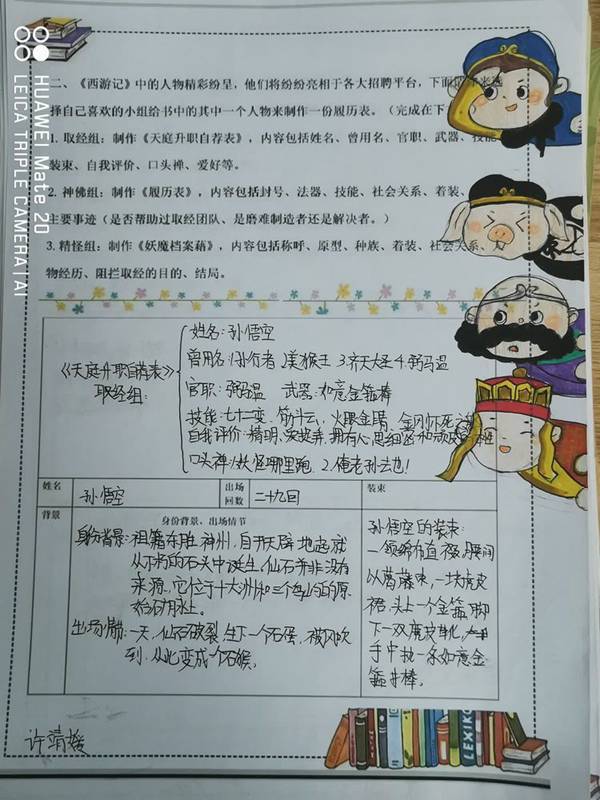 HUAWEI Mate 20
LEICA TRIPLE CAMERA | AI
二、《西游记》中的人物精彩纷呈，他们将纷纷亮相于各大招聘平台，下面
择自己喜欢的小组给书中的其中一个人物来制作一份履历表。（完成在下
1. 取经组：制作《天庭升职自荐表》，内容包括姓名、曾用名、官职、武器、技能
装束、自我评价、口头禅、爱好等。
2. 神佛组：制作《履历表》，内容包括封号、法器、技能、社会关系、着装、
主要事迹（是否帮助过取经团队、是磨难制造者还是解决者。）
3. 精怪组：制作《妖魔档案藉》，内容包括称呼、原型、种族、着装、社会关系、
物经历、阻拦取经的目的、结局。
《天庭升职自荐表》
取经组：
姓名：孙悟空
曾用名：1.孙行者 2.美猴王 3.齐天大圣 4.弼马温
官职：弼马温 武器：如意金箍棒
技能：七十二变、筋斗云、火眼金睛、金刚不死
自我评价：精明、爱捉弄、拥有 思细
口头禅：1.妖怪哪里跑 2.俺老孙去也！
姓名 孙悟空 出场回数 二十九回 装束
背景 身份背景、出场情节
身份背景：祖籍东胜神州，自开天辟地起就
从下的石头中诞生，仙石并非没有
来源，它位于十大洲和三个岛屿的原
始
出场情节：一天，仙石破裂，生下一个石蛋，被风吹
到，从此变成个石猴。
孙悟空的装束：
一领绵布直裰，腰间
以葛藤束，一块虎皮
裙，头上一个金箍，脚
下一双麂皮靴，
手中执一条如意金
箍棒。
LEXIKON
许靖媛